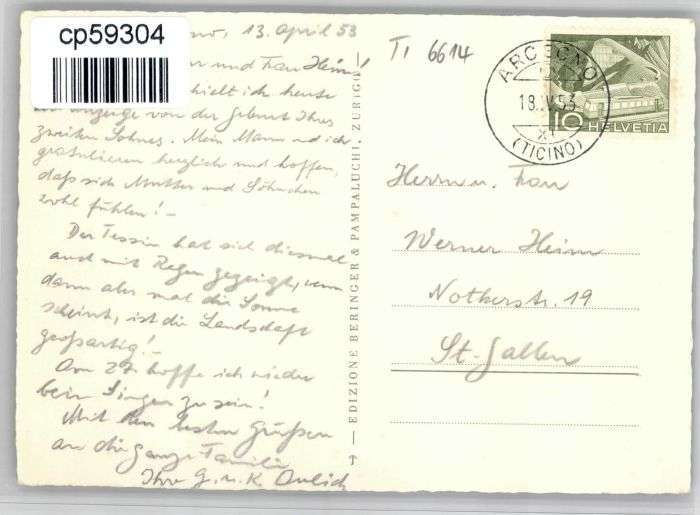 cp59304
13. April 53
und Frau Heim!
hielt ich heute
Anzeige von der Geburt Ihres
zweiten Sohnes. Mein Mann und ich
gratulieren herzlich und hoffen,
daß sich Mutter und Söhnchen
wohl fühlen! –
Der Tessin hat sich diesmal
auch mit Regen gezeigt, wenn
dann aber mal die Sonne
scheint, ist die Landschaft
großartig! –
Am 27. hoffe ich wieder
beim Singen zu sein!
Mit den besten Grüßen
an die ganze Familie
Ihre G. u. K.
— EDIZIONE BERINGER & PAMPALUCHI, ZURIGO
TI 6614
ARCEGNO
18.IV.53
XI
(TICINO)
10 HELVETIA
Herrn u. Frau
Werner Heim
Notkerstr. 19
St-Gallen